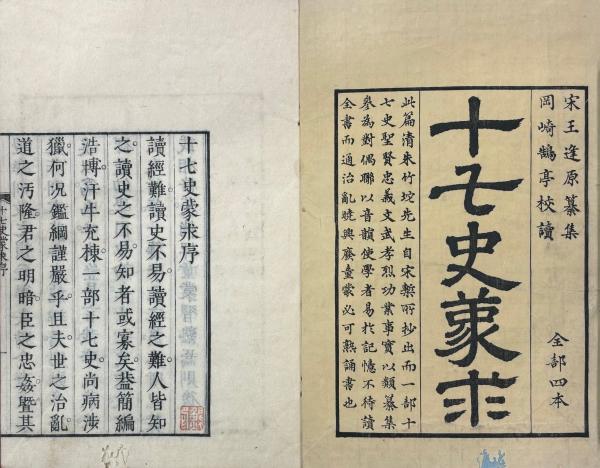 宋王逢原纂集
岡崎鵠亭校讀
全部四本
十七史蒙求
此篇清朱竹垞先生自宋槧所抄出而一部十
七史聖賢忠義文武孝烈功業事實以類纂集
參為對偶聯以音韻使學者易於記憶不待讀
全書而通治亂曉興廢童蒙必可熟誦書也
十七史蒙求序
讀經難讀史不易讀經之難人皆知
之讀史之不易知者或寡矣葢簡編
浩博汗牛充棟一部十七史尚病涉
獵何況鑑綱謹嚴乎且夫世之治亂
道之汚隆君之明暗臣之忠姦暨其
十七史蒙求序
一